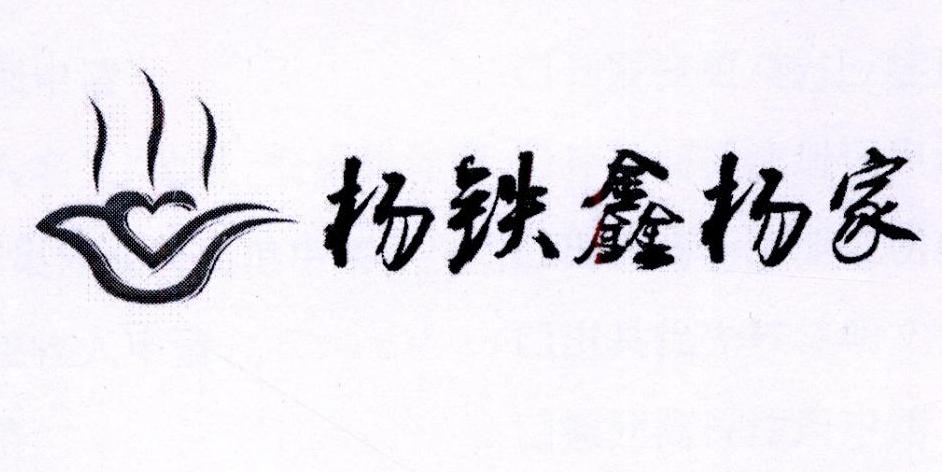 杨铁鑫杨家